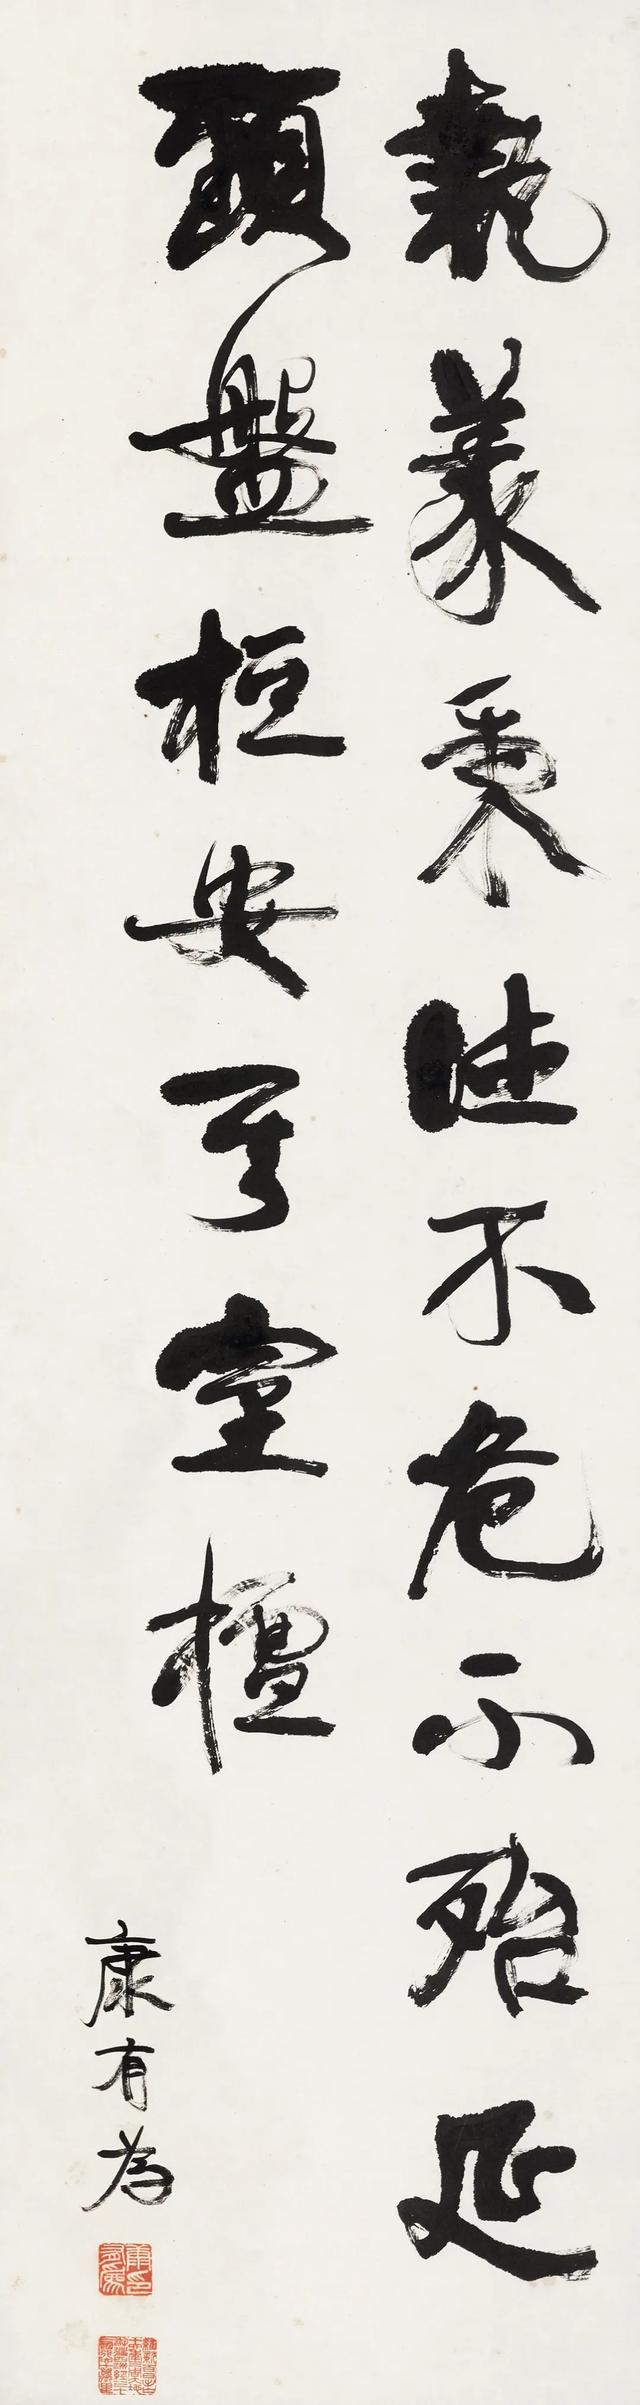 執義秉不危不殆延
盤桓安于室
康有為